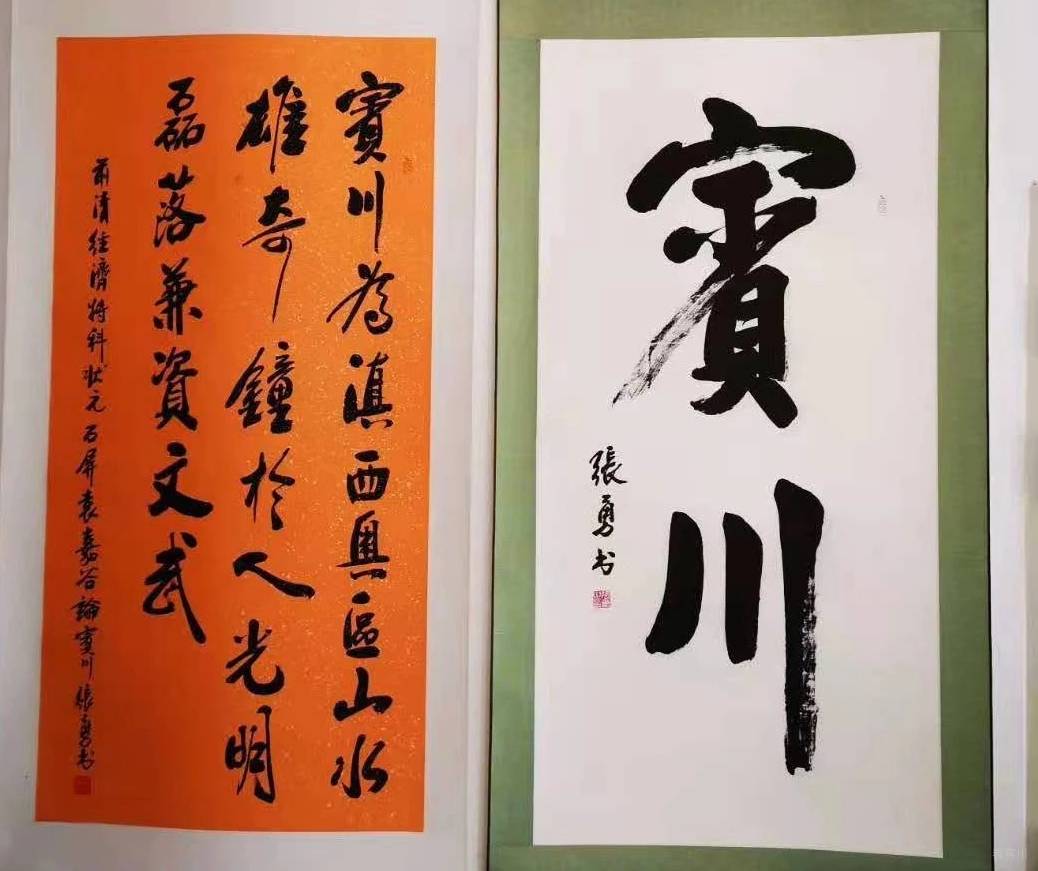 賓川
張勇书
賓川為滇西奧區山水
雄奇鐘於人光明
磊落兼資文武
前清经濟特科状元石屏袁嘉谷論賓川張勇书